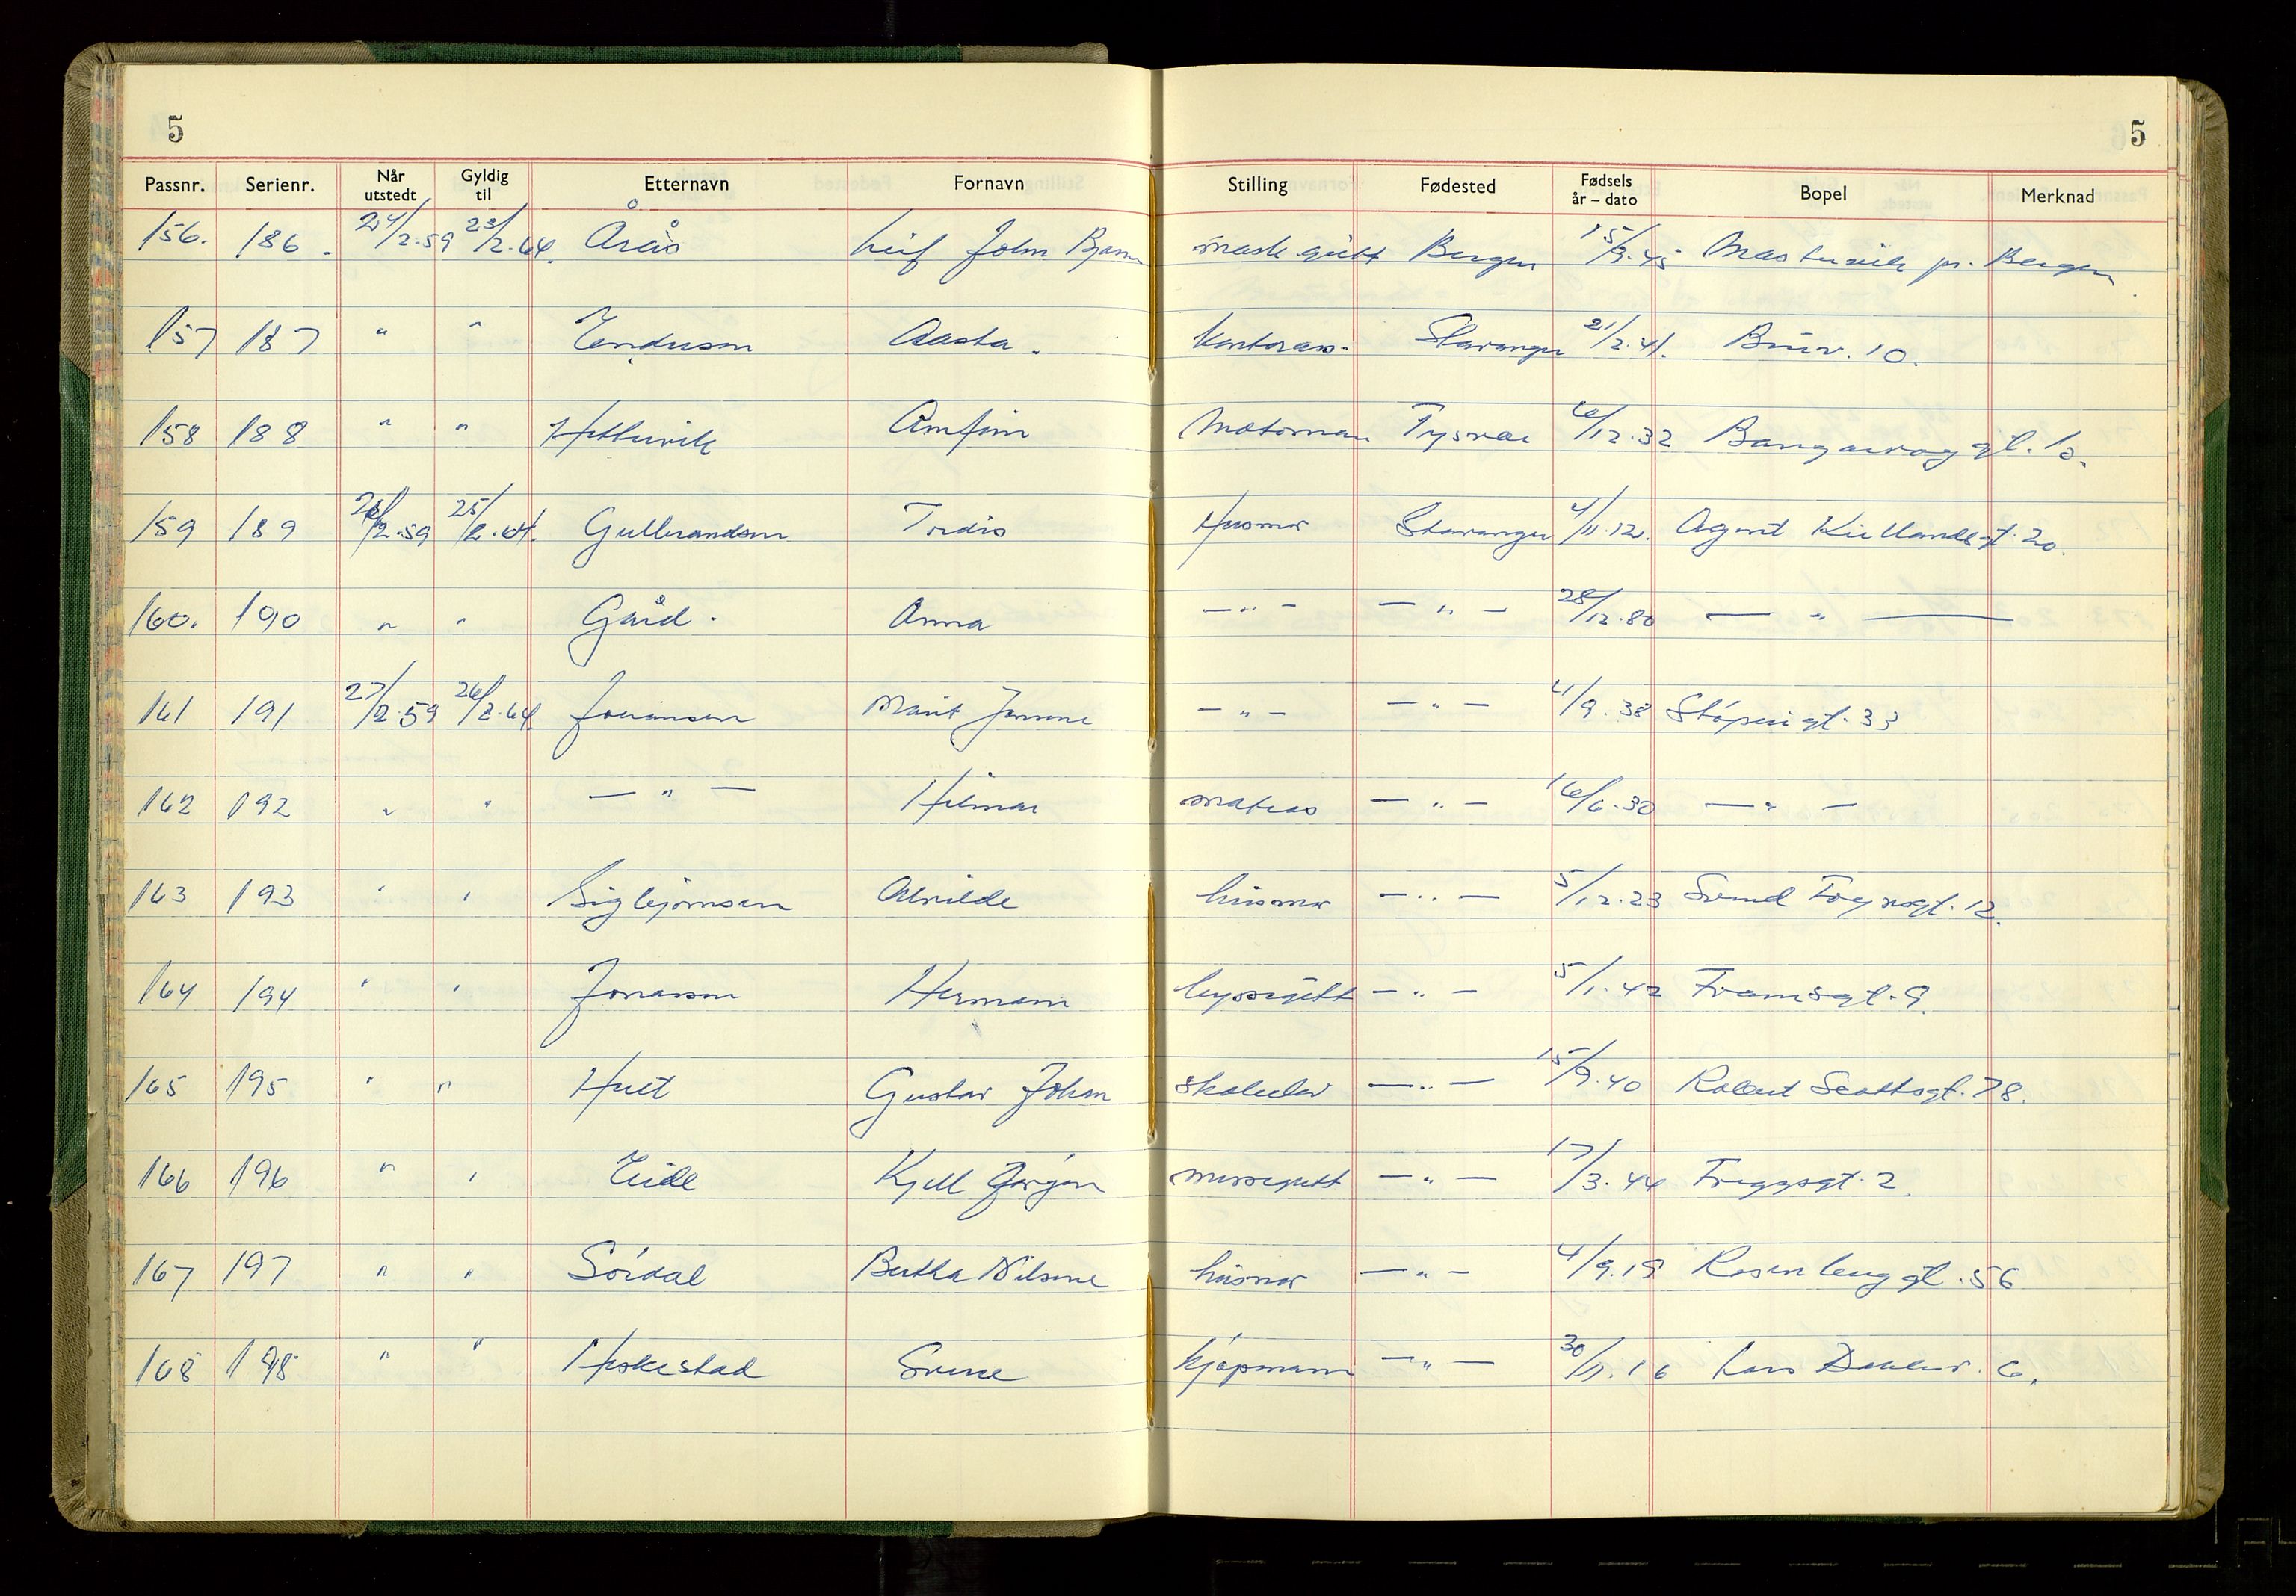 5 5
Passnr. Serienr. Når utstedt Gyldig til Etternavn Fornavn Stilling Fødested Fødsels år – dato Bopel Merknad
156. 186. 24/2.59 23/2.64. Årås Leif John Bjarne Bergen 15/9.45 pr. Bergen
157 187 " " Endresen Aasta. kontorass. Stavanger 21/2.41. Bruv. 10.
158 188 " " Hettervik Arnfinn Motorman Tysvær 6/12.32 Bangarvaggt. 10.
159 189 26/2.59 25/2.64. Gulbrandsen Tordis Husmor Stavanger 4/11.12. Agent Kiellandsgt. 20.
160. 190 " " Gård. Anna — " — — " — 28/12.80 — " —
161 191 27/2.59 26/2.64. Johansen Marit Jonine — " — — " — 4/9.38 Støperigt. 33
162 192 " " — " — Hilmar matros — " — 16/6.30 — " —
163 193 " " Sigbjørnsen Alvilde husmor — " — 5/12.23 Svend Foynsgt. 12.
164 194 " " Jonassen Hermann byssegutt — " — 5/1.42 Framsgt. 9.
165 195 " " Hult Gustav Johan skoleelev — " — 15/9.40 Robert Scottsgt. 78.
166 196 " " Eide Kjell Jørgen messegutt — " — 17/3.44 Friggsgt. 2.
167 197 " " Sørdal Bertha Nilsine husmor — " — 4/9.19 Rosenberggt. 56
168 198 " " Heskestad Sverre kjøpmann — " — 30/11.16 Lars Dahlesv. 6.